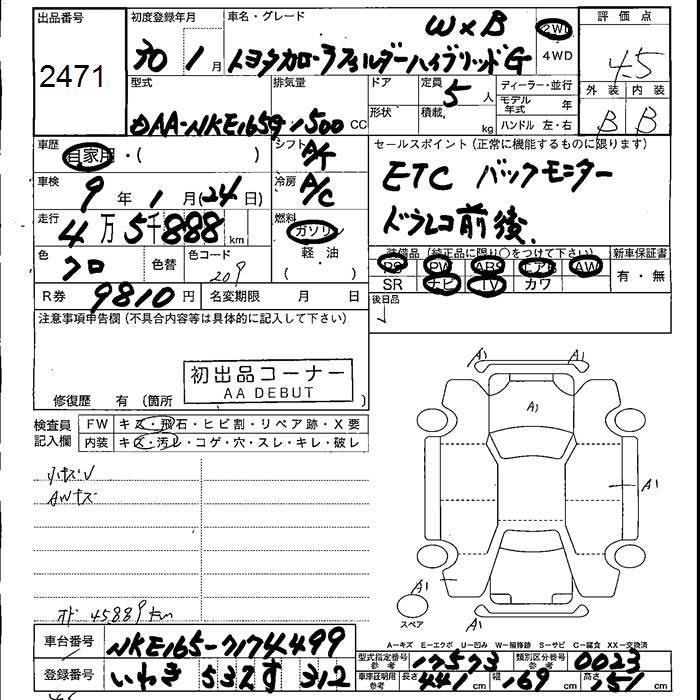 出品番号
2471
初度登録年月
30 1月
車名・グレード
W×B
トヨタカローラフィルダーハイブリッドG
2WD
4WD
評価点
4.5
外装 内装
B B
型式
DAA-NKE165G
排気量
1500 CC
ドア
形状
定員 5人
積載 kg
ディーラー・並行
モデル年式 年
ハンドル 左・右
車歴
自家用・( )
シフト
A/T
セールスポイント(正常に機能するものに限ります)
ETC バックモニター
ドラレコ前後
車検
9年1月(24日)
冷房
A/C
走行
4万5千888km
燃料
ガソリン
軽・油
( )
色
クロ
色替
色コード
209
装備品(純正品に限り○をつけて下さい)
PS PW ABS エアB AW
SR ナビ TV カワ
新車保証書
有・無
R券
9810円
名変期限 月 日
後日品
注意事項申告欄(不具合内容等は具体的に記入して下さい)
初出品コーナー
AA DEBUT
修復歴 有(箇所
検査員記入欄
FW キズ・飛石・ヒビ割・リペア跡・X要
内装 キズ・汚レ・コゲ・穴・スレ・キレ・破レ
小キズU
AWキズ
オド 45889km
A1 A1
A1
A1
A1
A1
スペア
A-キズ E-エクボ U-凹み W-補修跡 S-サビ C-腐食 XX-交換済
車台番号
NKE165-7174499
登録番号
いわき 532 す 312
型式指定番号
参考
17573
類別区分番号
参考
0023
車庫証明用
参考
長さ 441 cm
幅 169 cm
高さ 151 cm